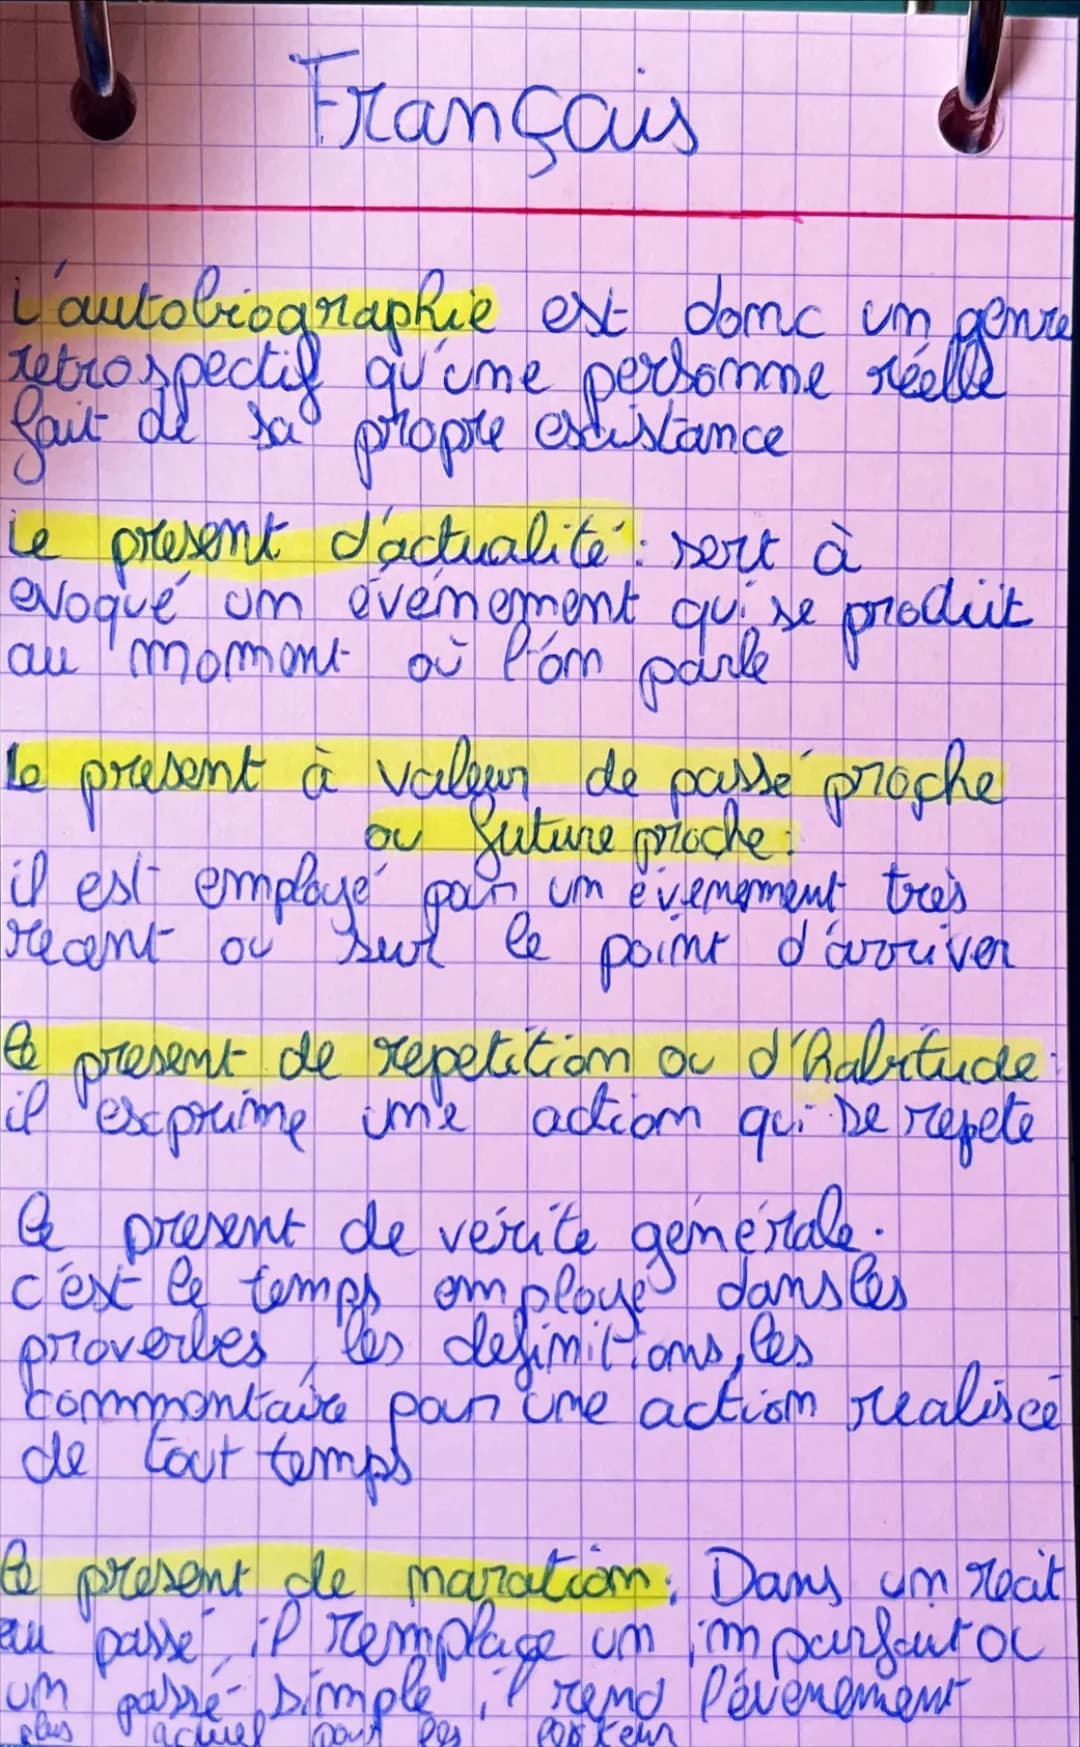 Français
L'autobiographie est donc un genre
retrospectif qu'une personne réelle
fait de sa propre existance
Le present d'actualité : sert à
evoqué un évémement qui se produit
au moment où l'on parle
Le present à valeur de passé proche
ou future proche :
il est employé par un évenement très
recent ou sur le point d'arriver
le present de repetition ou d'habitude :
il exprime une action qui se repete
le present de vérité générale.
c'est le temps employé dans les
proverbes, les definitions, les
commentaire par une action realiscé
de tout temps
le present de naration : Dans un recit
au passé, il remplace un imparfait ou
un passé simple, il rend l'évenement
plus actuel pour les